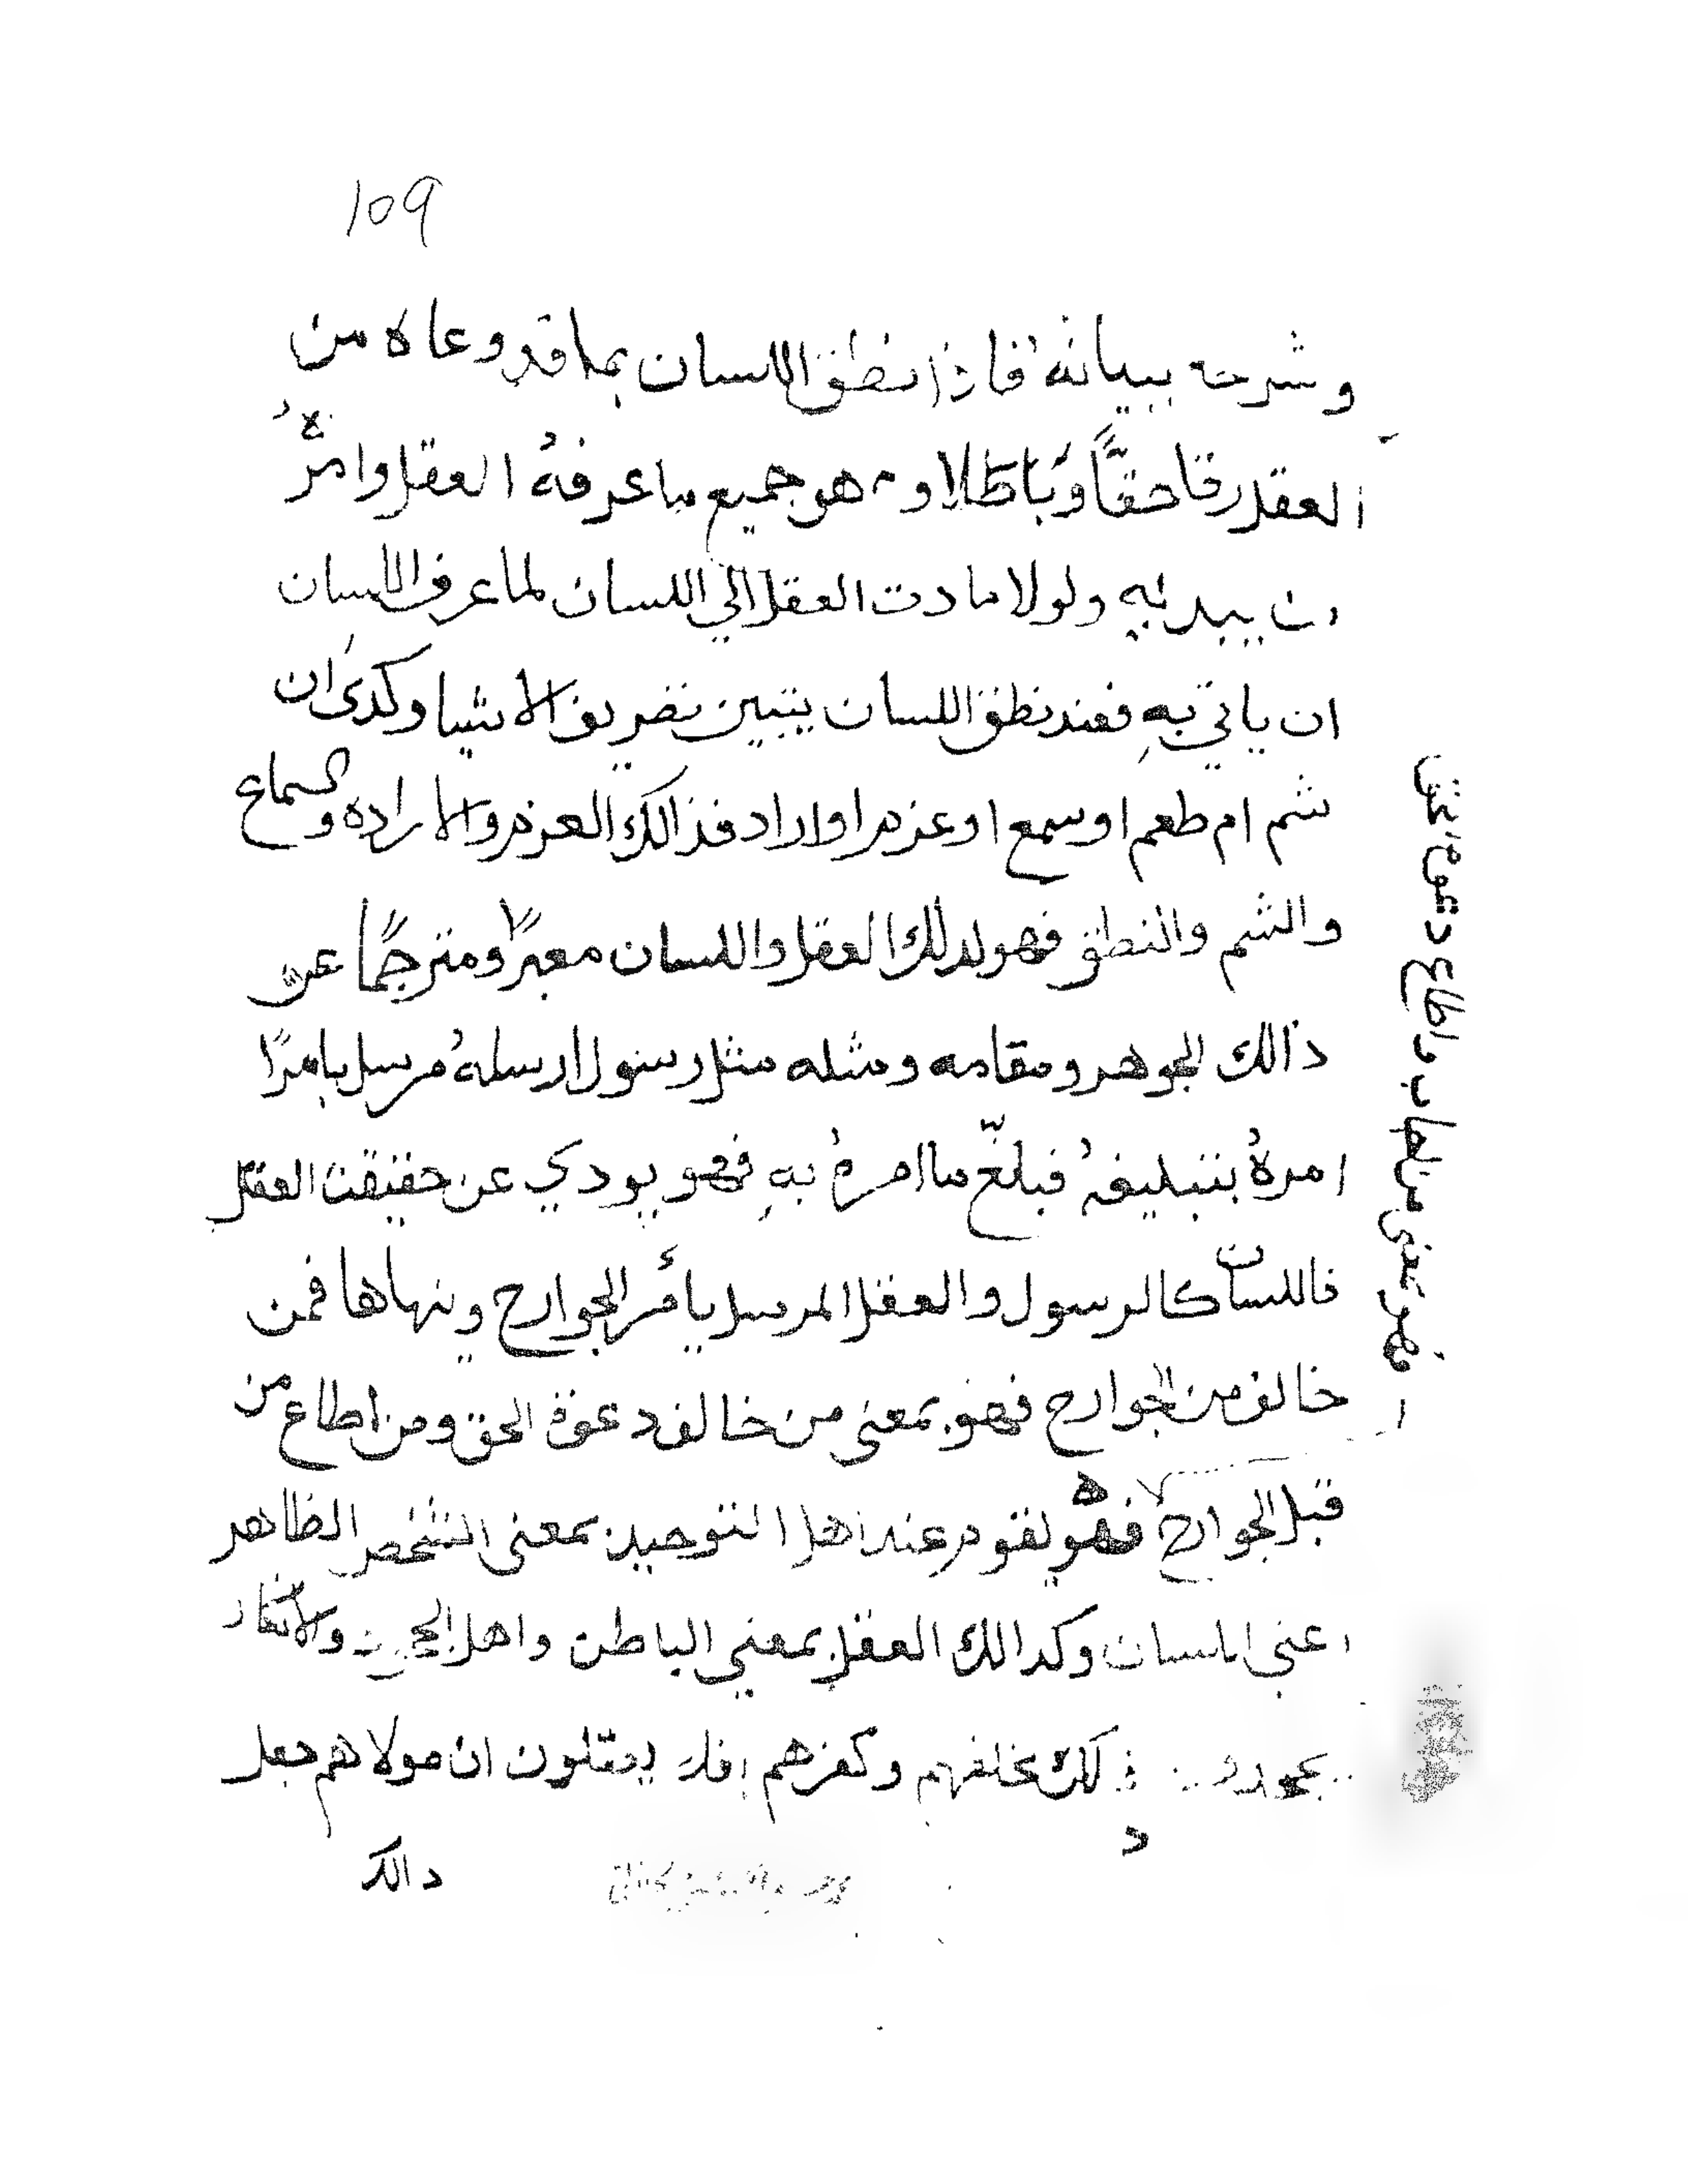 109
وشرحه ببيانهُ فاذا نطق اللسان بما قد وعاه من
العقل رقا حقًا وباطلا وهو جميع ما عرفهُ العقل وامرهُ
ان يبد به ولولا مادت العقل الي اللسان لما عرف اللسان
ان ياتي بهِ فعند نطق اللسان يتبين تصريف الاشيا وكدى ان
شم ام طعم او سمع او عزم او اراد فذالك العزم والاراده والسماع
والشم والنطق فهو لدلك العقل واللسان معبرًا ومترجمًا عن
ذالك الجوهر ومقامه ومثله مثل رسول ارسلهُ مرسل بامرًا
امرهُ بتبليغهُ فبلغّ ما امرهُ بهِ فهو يودي عن حقيقت العقل
فاللسان كالرسول والعقل المرسل يأمر الجوارح وينهاها فمن
خالف من الجوارح فهو بمعنى من خالف دعوة الحق ومن اطاع من
قبل الجوارح فهو يقوم عند اهل التوحيد بمعنى الشخص الظاهر
اعني اللسان وكدالك العقل بمعني الباطن واهل والانكار
لك بخلفهم وكفرهم ان مولاهم جعل
د
دالك
من اجاب واطاع دعوة